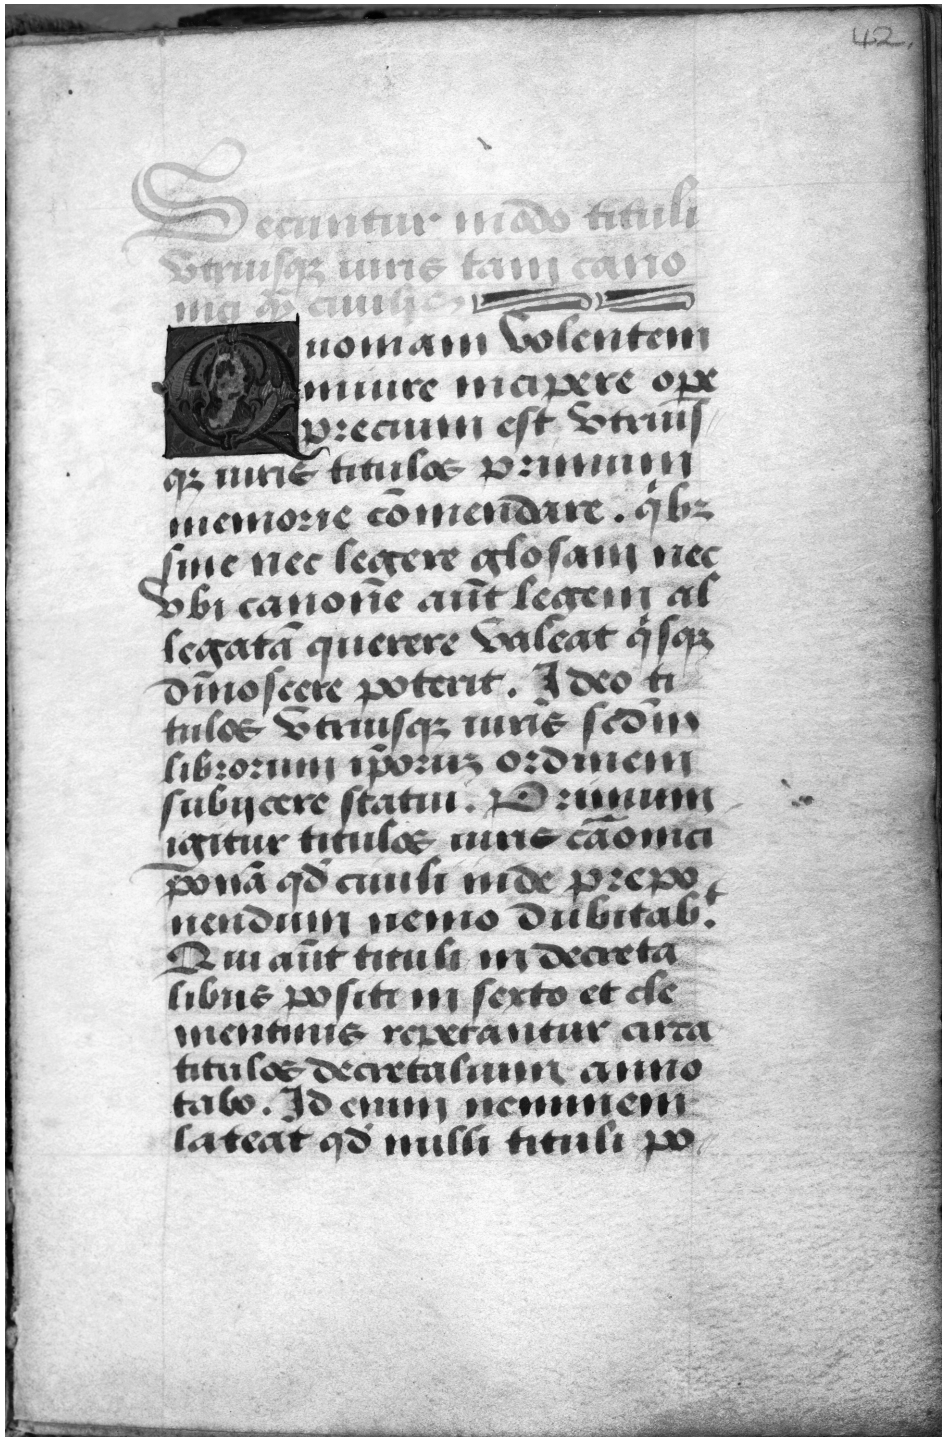 42.
Secuntur modo tituli
Vtriusqȝ iuris tam cano
nici qȝ ciuilis
Quoniam volentem
in iure incipere ope
precium est vtrius
qȝ iuris titulos primum
memorie cōmendare. qͥbꝫ
sine nec legere glosam nec
vbi canonē aūt legem al
legatā querere valeat qͥsqȝ
dīnoscere poterit. Ideo ti
tulos vtriusqȝ iuris scdm̄
librorum ip̄oruꝫ ordinem
subijcere statui. Primum
igitur titulos iuris cāonici
ponā qd̄ ciuili inde prepo
nendum nemo dubitabᵗ.
Qui aūt tituli in decreta
libus positi in sexto et cle
mentinis reperantur circa
titulos decretalium anno
tabo. Id enim neminem
lateat qd̄ nulli tituli po